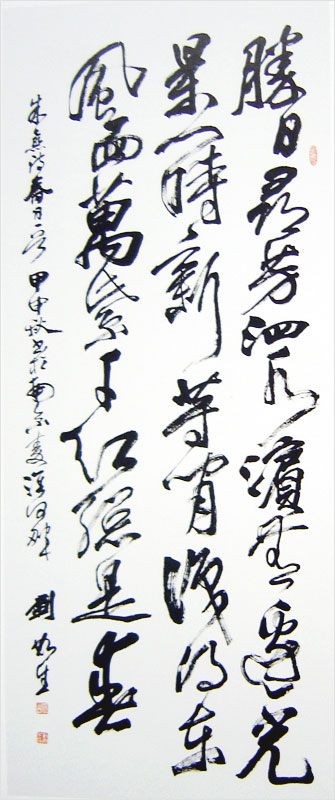 勝日尋芳泗水濱無邊光
景一時新等閒識得東
風面萬紫千紅總是春
朱熹詩春日一首 甲申秋書於南京秦淮河畔 劉 生